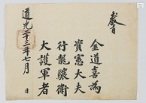 敎旨
金道喜爲
資憲大夫
行龍驤衛
大護軍者
道光十三年七月 日